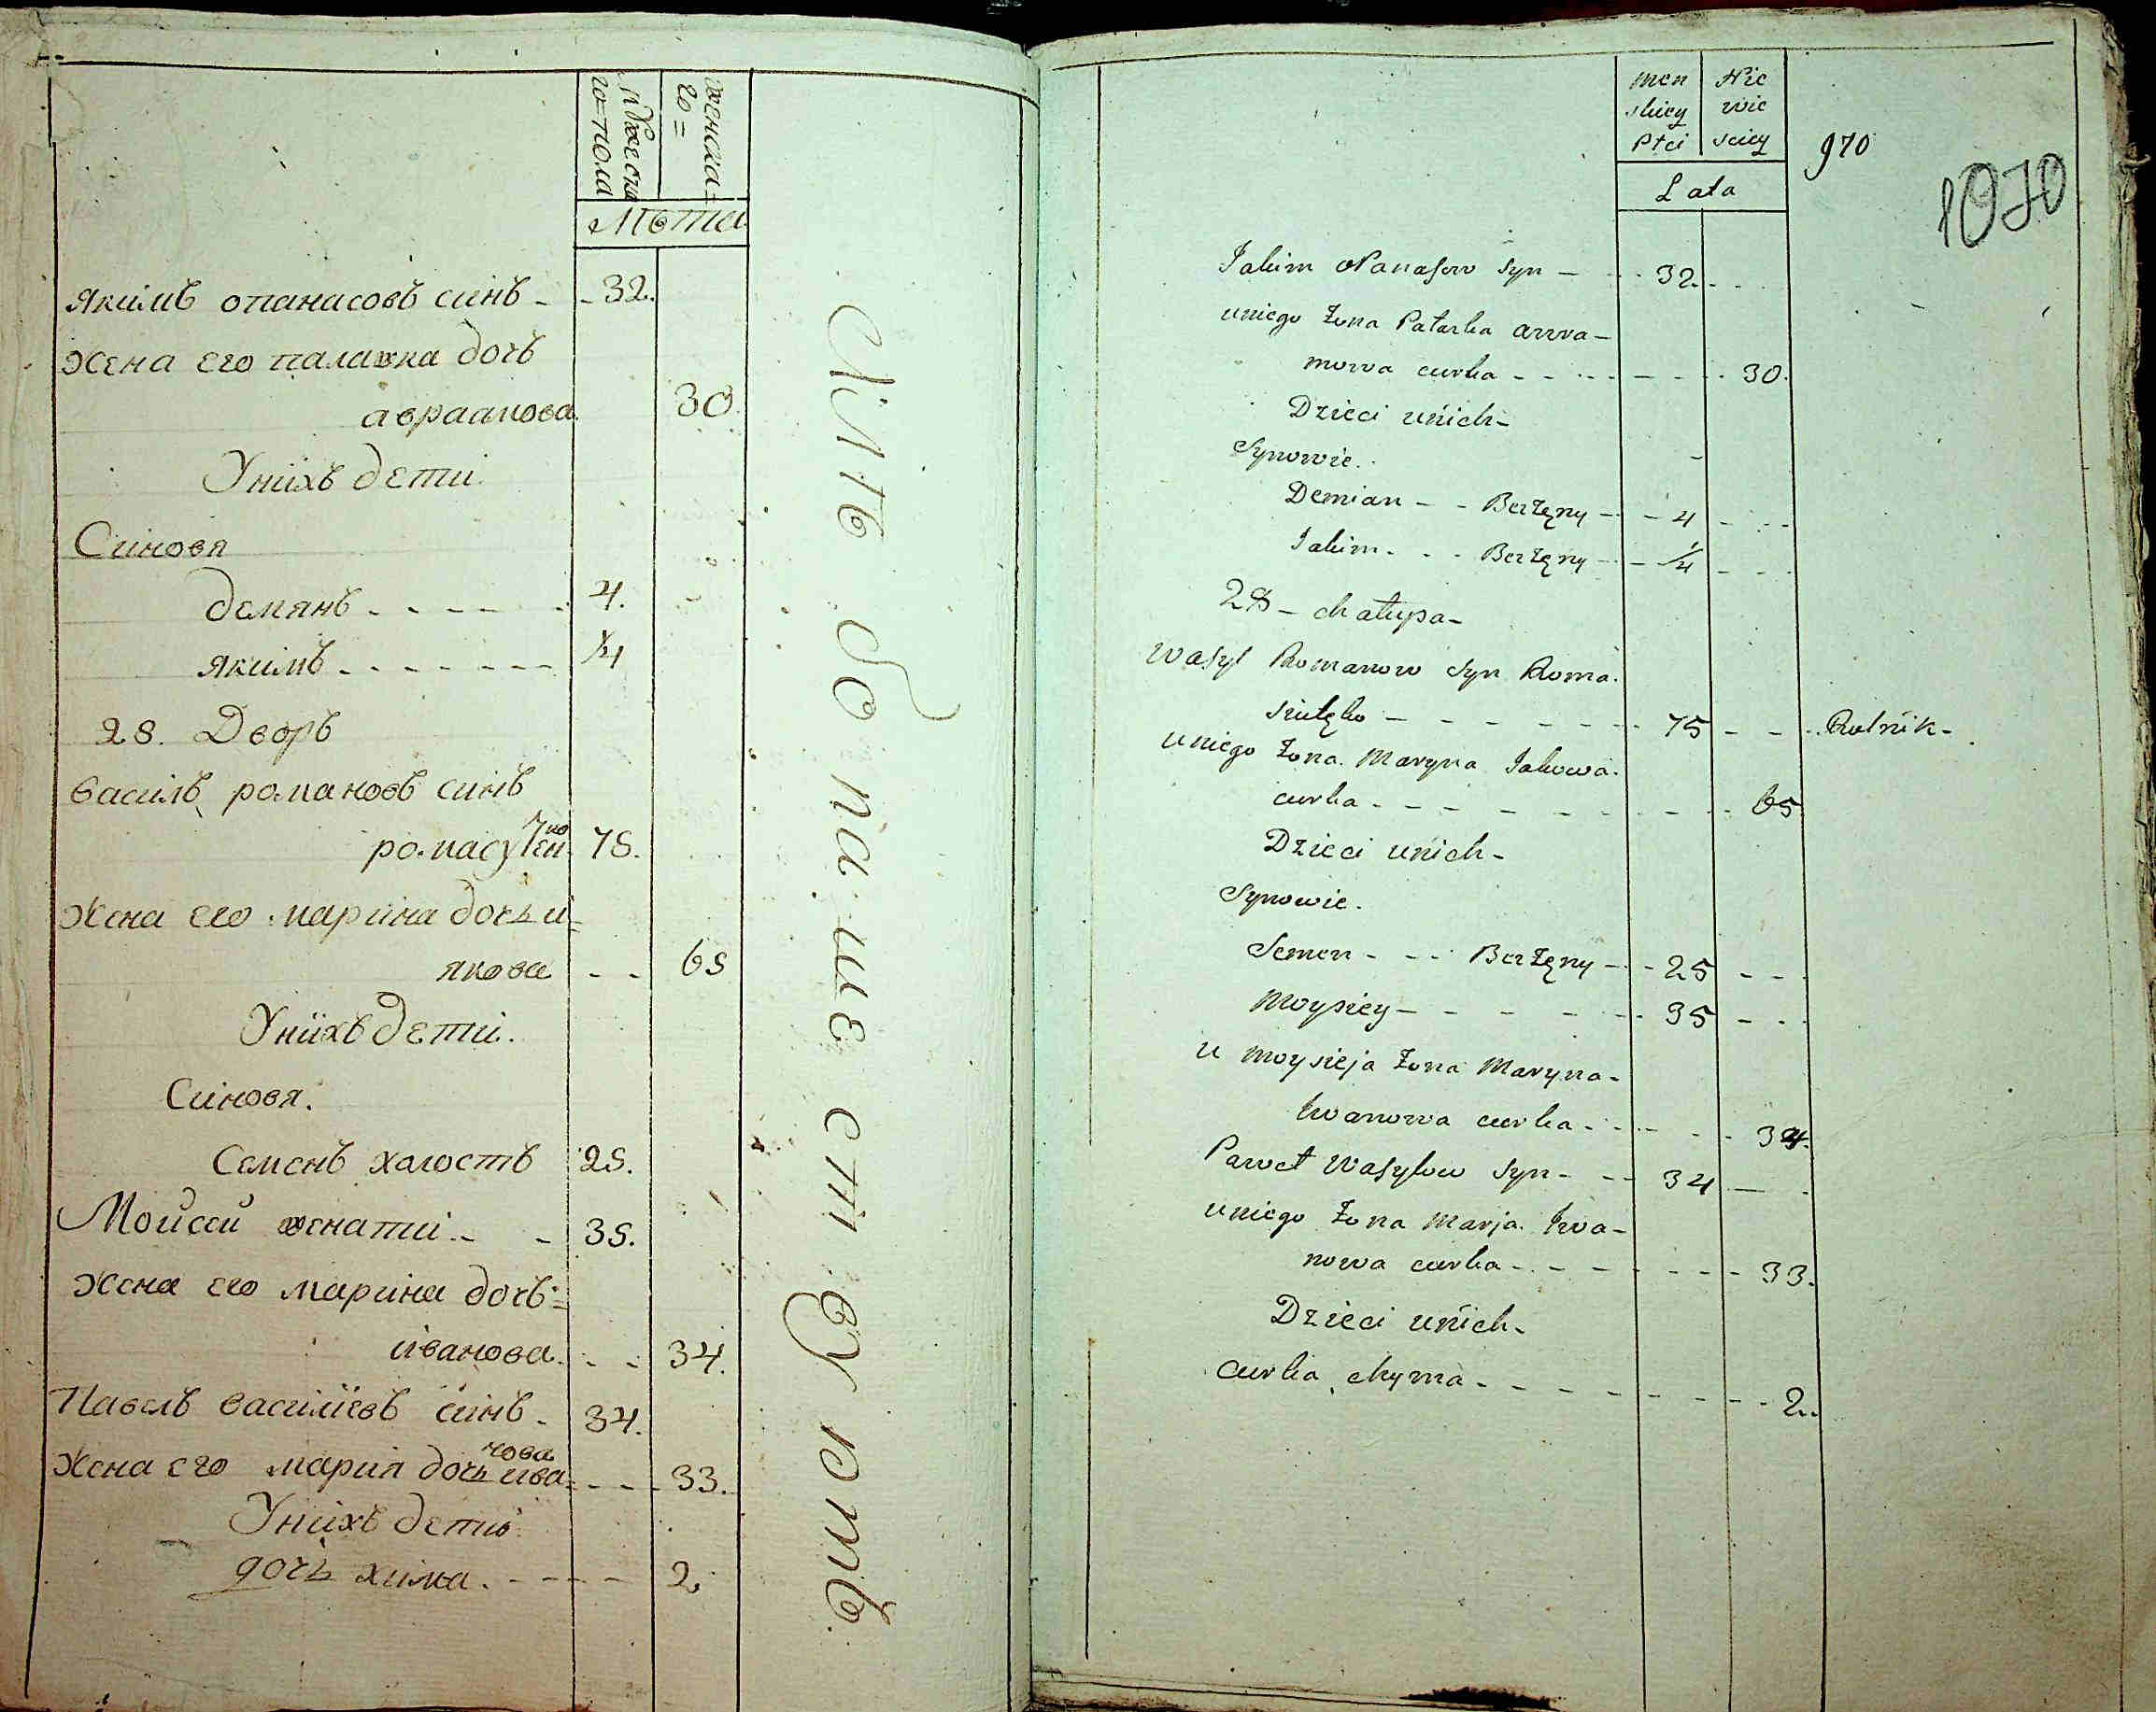 мужеска
го пола
женска=
го=
Лѣта
Якимъ опанасовъ синъ - - 32.
Жена его палажка дочъ
авраамова. 30
Унихъ дети.
Синовя
демянъ - - - - - 4.
якимъ - - - - - - - 1/4
28. Дворъ
василъ романовъ синъ
ромасученко 75.
Жена его марина дочь и=
якова - - 65
Унихъ дети.
Синовя.
Семенъ халостъ 25.
Мойсей женати - - 35.
жена его марина дочъ=
иванова. - - 34.
Павелъ василиевъ синъ - 34.
жена его мария дочь ива=нова - - - 33.
Унихъ дети
дочь хима. - - - - 2.
men
skiey
Płci
Nie
wie
sciey
Lata
970
1070
Jakim oPanasow syn - - - 32. - - -
uniego Żona Palaszka awra-
mowa curka - - - - - - - - 30.
Dzieci unich-
Synowie.
Demian - - Bezżęny - - 4 - - -
Jakim - - - Bezżęny - - 1/4 - - -
28 - chałupa -
Wasyl Romanow syn Roma.
- - - - - - - 75 - - - Rolnik -
uniego Żona Maryna Jakowa.
curka - - - - - - - - - 65
Dzieci unich-
Synowie.
Semen - - - Bezżęny - - 25 - - -
Moysiey - - - - - - 35 - - -
u Moysieja Żona Maryna-
Iwanowa curka - - - - - 34.
Paweł Wasylow syn - - - 34 - -
uniego Żona Marja Iwa-
nowa curka - - - - - - - - 33.
Dzieci unich-
curka chyma - - - - - - - - - 2.